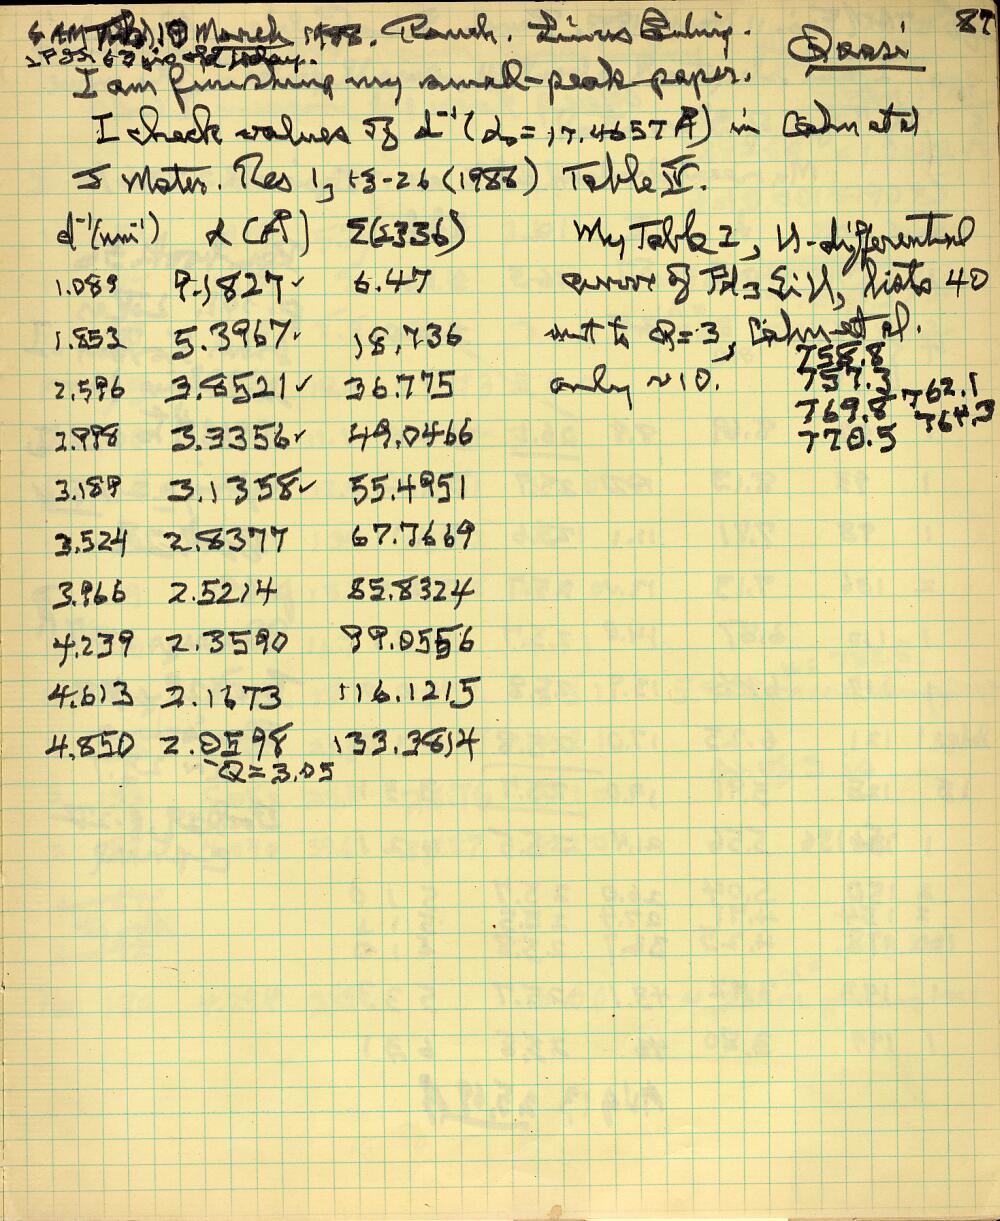 87
March 1988. Ranch. Linus Pauling. Quasi
is old today.
I am finishing my small-peak paper.
I check values of d⁻¹ (d₀ = 17.4657 Å) in Cahn et al
J Mater. Res 1, 13-26 (1986) Table IV.
d⁻¹(nm⁻¹) d (Å) Σ(≤336)
My Table 2, n-differential
1.089 9.1827✓ 6.47
lists 40
1.853 5.3967✓ 18.736
out to Q=3, Cahn et al.
2.596 3.8521✓ 36.775
only ~10.
758.8
757.3
769.8 762.1
770.5 764.3
2.998 3.3356✓ 49.0466
3.189 3.1358✓ 55.4951
3.524 2.8377 67.7669
3.966 2.5214 85.8324
4.239 2.3590 99.0556
4.613 2.1673 116.1215
4.850 2.0598 133.3814
Q=3.05